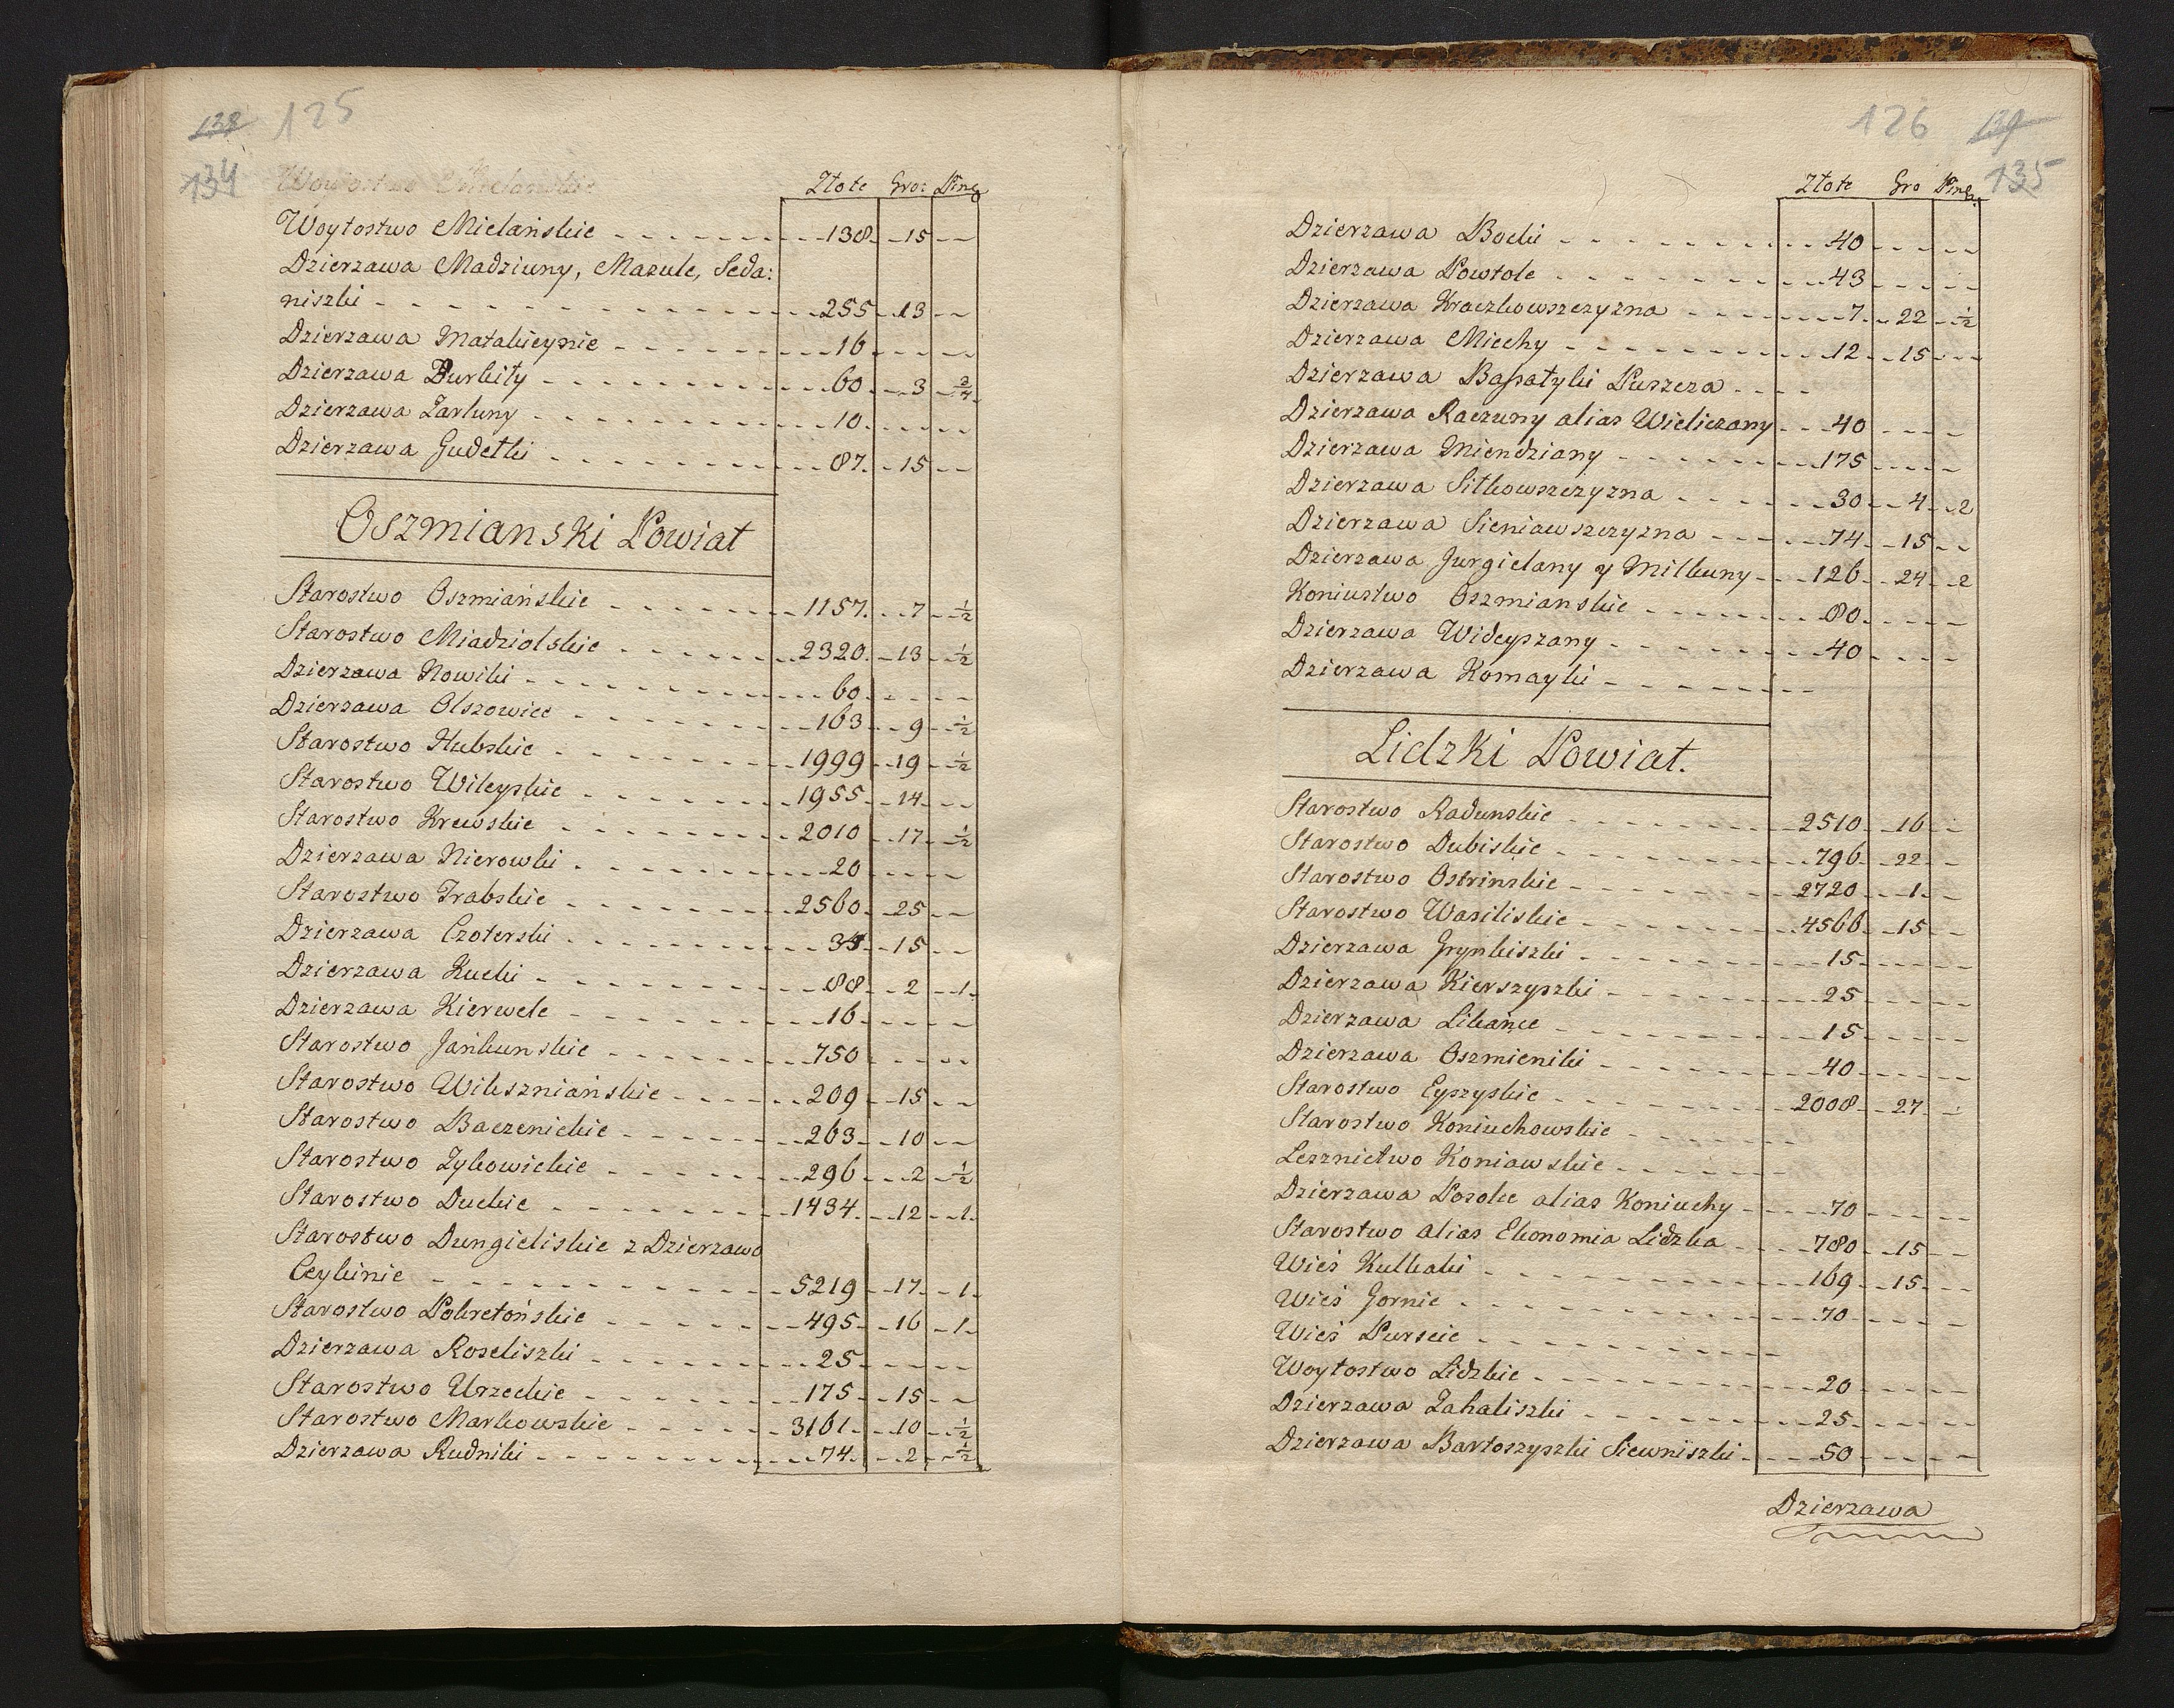 138 125
134 Woytostwo Mielańskie
Złote Gro: Pieng
Woytostwo Mielańskie 138 15
Dzierzawa Madziuny, Mazule, Seda:
niszki 255 13
Dzierzawa Matakieynie 16
Dzierzawa Burbity 60 3 2/4
Dzierzawa Zartuny 10
Dzierzawa Gudełki 87 15
Oszmianski Powiat
Starostwo Oszmiańskie 1157 7 1/2
Starostwo Miadziolskie 2320 13 1/2
Dzierzawa Nowiki 60
Dzierzawa Olszowiec 163 9 1/2
Starostwo Hubskie 1999 19 1/2
Starostwo Wileyskie 1955 14
Starostwo Krewskie 2010 17 1/2
Dzierzawa Nierowki 20
Starostwo Trabskie 2560 25
Dzierzawa Czoterski 15
Dzierzawa Kucki 88 2 1
Dzierzawa Kierwele 16
Starostwo Jańkunskie 750
Starostwo Wikszniańskie 209 15
Starostwo Baczenickie 263 10
Starostwo Zykowickie 296 2 1/2
Starostwo Duckie 1434 12 1
Starostwo Dungieliskie z Dzierzawo
Ceykinie 5219 17 1
Starostwo Pokretońskie 495 16 1
Dzierzawa Roseliszki 25
Starostwo Urzeckie 175 15
Starostwo Markowskie 3161 10 1/2
Dzierzawa Rudniki 74 2 1/2
126 139
135
Złote Gro Pieng
Dzierzawa Bocki 40
Dzierzawa Powtole 43
Dzierzawa Kraczkowszczyzna 7 22 1/2
Dzierzawa Miechy 12 15
Dzierzawa Bassatyki Puszcza
Dzierzawa Raczuny alias Wieliczany 40
Dzierzawa Miendziany 175
Dzierzawa Sitkowszczyzna 30 4 2
Dzierzawa Sieniawszczyzna 74 15
Dzierzawa Jurgielany y Milkuny 126 24 2
Koniustwo Oszmianskie 80
Dzierzawa Wideyszany 40
Dzierzawa Komayki
Lidzki Powiat.
Starostwo Radunskie 2510 16
Starostwo Dubiskie 796 22
Starostwo Ostrinskie 2720 1
Starostwo Wasiliskie 4566 15
Dzierzawa Grynkiszki 15
Dzierzawa Kierszyszki 25
Dzierzawa Likańce 15
Dzierzawa Oszmieniki 40
Starostwo Eyszyskie 2008 27
Starostwo Koniuchowskie
Lesznictwo Koniawskie
Dzierzawa Posolce alias Koniuchy 70
Starostwo alias Ekonomia Lidzka 780 15
Wieś Kulkaki 169 15
Wieś Gornie 70
Wieś Purscie
Woytostwo Lidzkie 20
Dzierzawa Zahaliszki 25
Dzierzawa Bartoszyszki Siewniszki 50
Dzierzawa